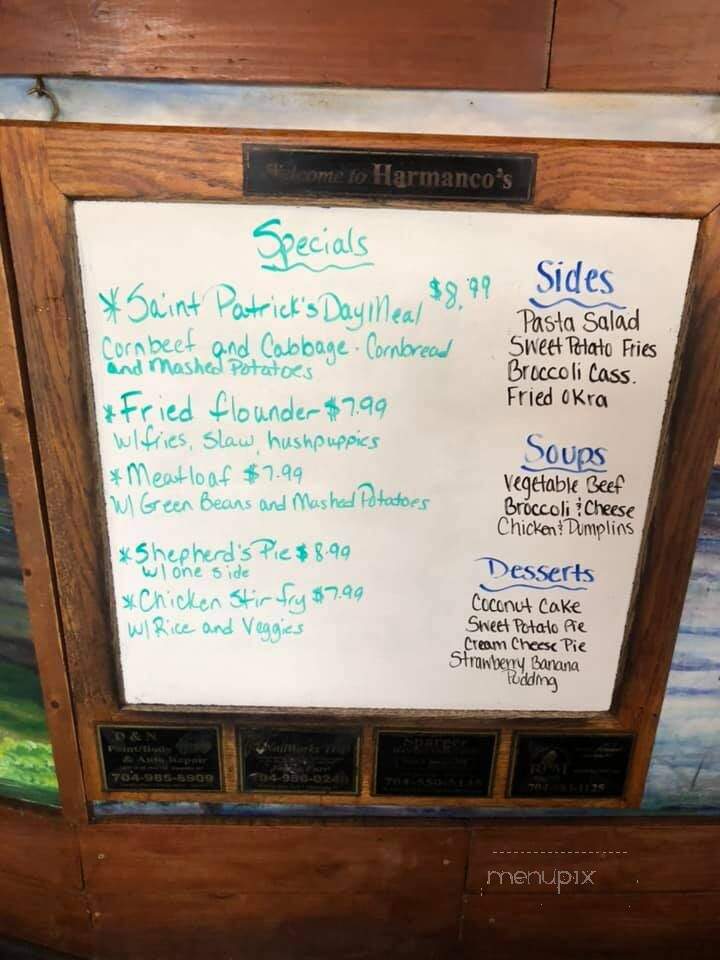 Welcome to Harmanco's
Specials
* Saint Patrick's Day Meal $8.99
Cornbeef and Cabbage - Cornbread
and Mashed Potatoes
* Fried flounder - $7.99
w/fries, slaw, hushpuppies
* Meatloaf $7.99
w/ Green Beans and Mashed Potatoes
* Shepherd's Pie $8.99
w/ one side
* Chicken Stir-fry $7.99
w/ Rice and Veggies
Sides
Pasta Salad
Sweet Potato Fries
Broccoli Cass.
Fried Okra
Soups
Vegetable Beef
Broccoli & Cheese
Chicken & Dumplins
Desserts
Coconut Cake
Sweet Potato Pie
Cream Cheese Pie
Strawberry Banana
Pudding
D & N
Paint/Body
& Auto Repair
704-985-8909
menupix